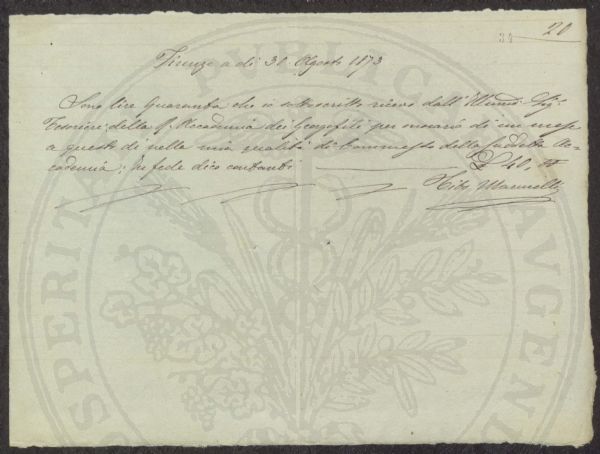 20
34
Firenze a dì 31 Agosto 1873
Sono lire Quaranta che io sottoscritto ricevo dall' Illmo Sig.
Tesoriere della R. Accademia dei Georgofili per onorario di un mese
a questo dì nella mia qualità di Commesso della suddetta Ac-
cademia; in fede dico contanti £ 40,
Tito
PROSPERITATI PUBLICAE AVGENDAE